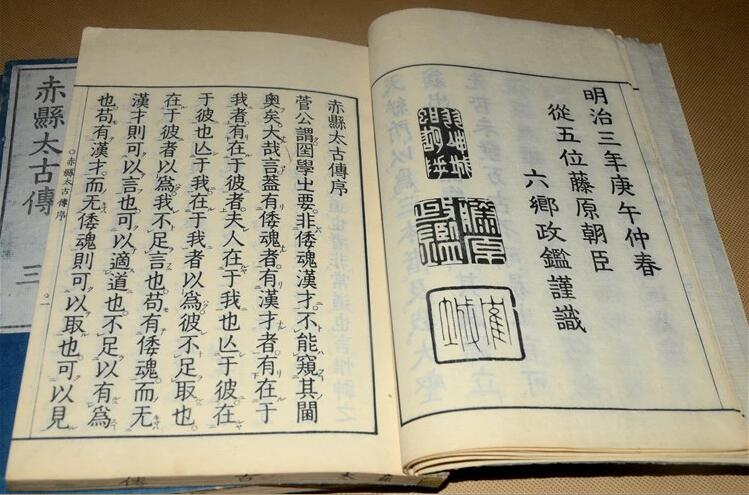 明治三年庚午仲春
從五位藤原朝臣
六鄉政鑑謹識
藤原政鑑
赤縣太古傳序
菅公謂圀學㞢要非倭魂漢才不能窺其閫
奧矣大哉言葢有倭魂者有漢才者有在于
我者有在于彼者夫人在于我也亾于彼在
于彼也亾于我在于我者以爲彼不足取也
在于彼者以爲我不足言也苟有倭魂而无
漢才則可以言也可以適道也不足以有爲
也苟有漢才而无倭魂則可以取也可以見
○赤縣太古傳序 ○一
赤縣太古傳 三